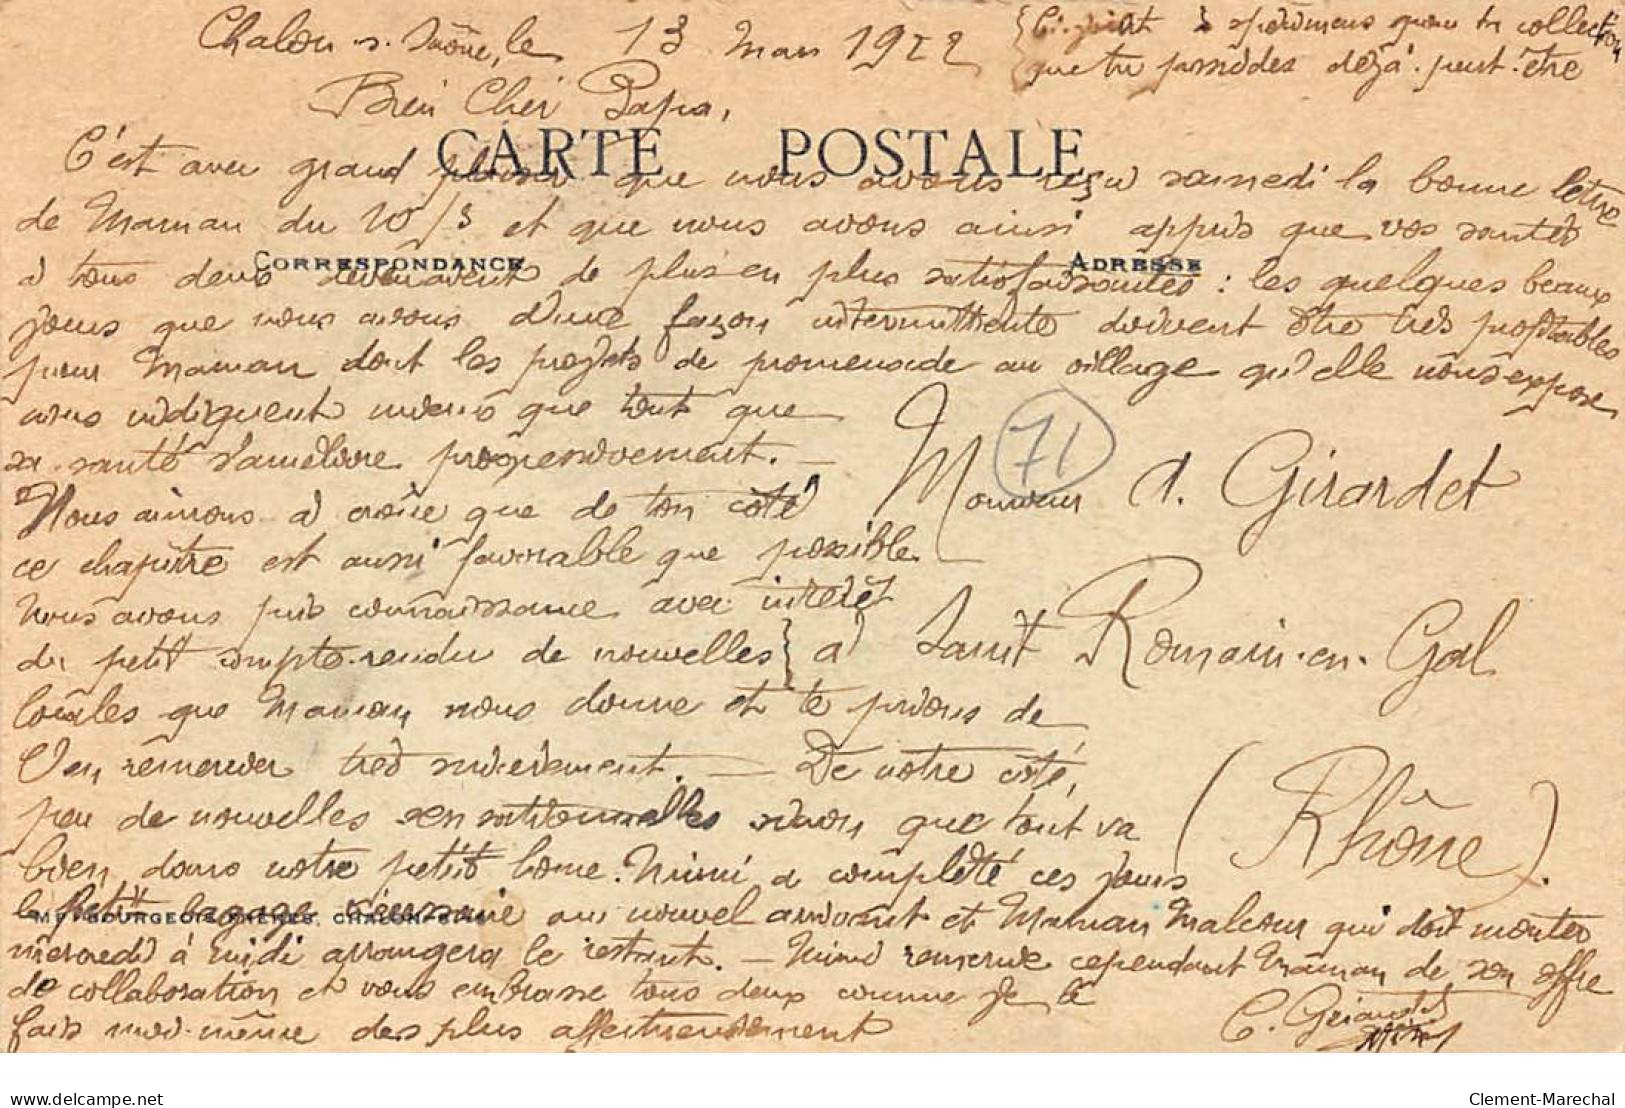 Chalon-s-Saône, le 13 Mars 1922
{Ci-joint 2 spécimens pour ta collection
que tu possèdes déjà peut-être
Bien Cher Papa,
CARTE POSTALE
C'est avec grand plaisir que nous avons reçu samedi la bonne lettre
de Maman du 10/3 et que nous avons ainsi appris que vos santés
CORRESPONDANCE
ADRESSE
à tous deux devenaient de plus en plus satisfaisantes : les quelques beaux
jours que nous avons d'une façon intermittente doivent être très profitables
pour Maman dont les projets de promenade au village qu'elle nous expose
nous indiquent mieux que tout que
sa santé s'améliore progressivement. —
Nous aimons à croire que de ton côté
ce chapitre est aussi favorable que possible
Nous avons pris connaissance avec intérêt
du petit compte-rendu de nouvelles
locales que Maman nous donne et te prions de
l'en remercier très sincèrement. — De notre côté,
peu de nouvelles sensationnelles sinon que tout va
bien dans notre petit home. Mimi a complété ces jours
le petit bagage nécessaire au nouvel arrivant et Maman Malcour qui doit monter
MP. BOURGEOIS FRÈRES, CHALON-S-S
mercredi à midi arrangera le restant. — Mimi remercie cependant Maman de son offre
de collaboration et vous embrasse tous deux comme je le
fais moi-même des plus affectueusement
C. Girardet
71
Monsieur A. Girardet
à Saint Romain-en-Gal
(Rhône).
Clement-Marechal
my.delcampe.net